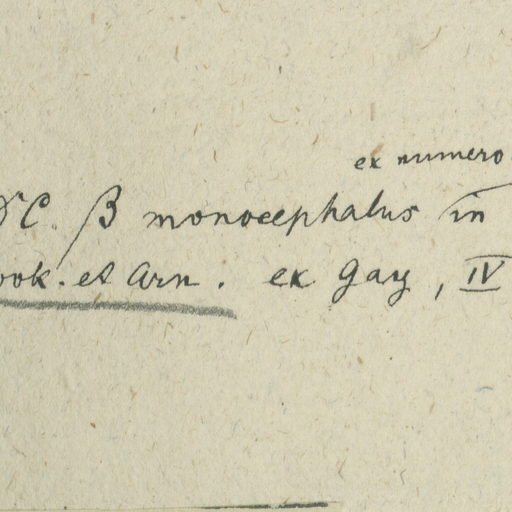 ex numero
DC. β monocephalus in
ook. et Arn. ex Gay, IV